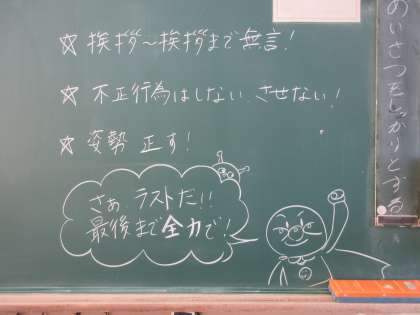 ☆ 挨拶〜挨拶まで無言！
☆ 不正行為はしない、させない！
☆ 姿勢 正す！
さぁ、ラストだ！！
最後まで全力で！
のいさつをしっかりとする